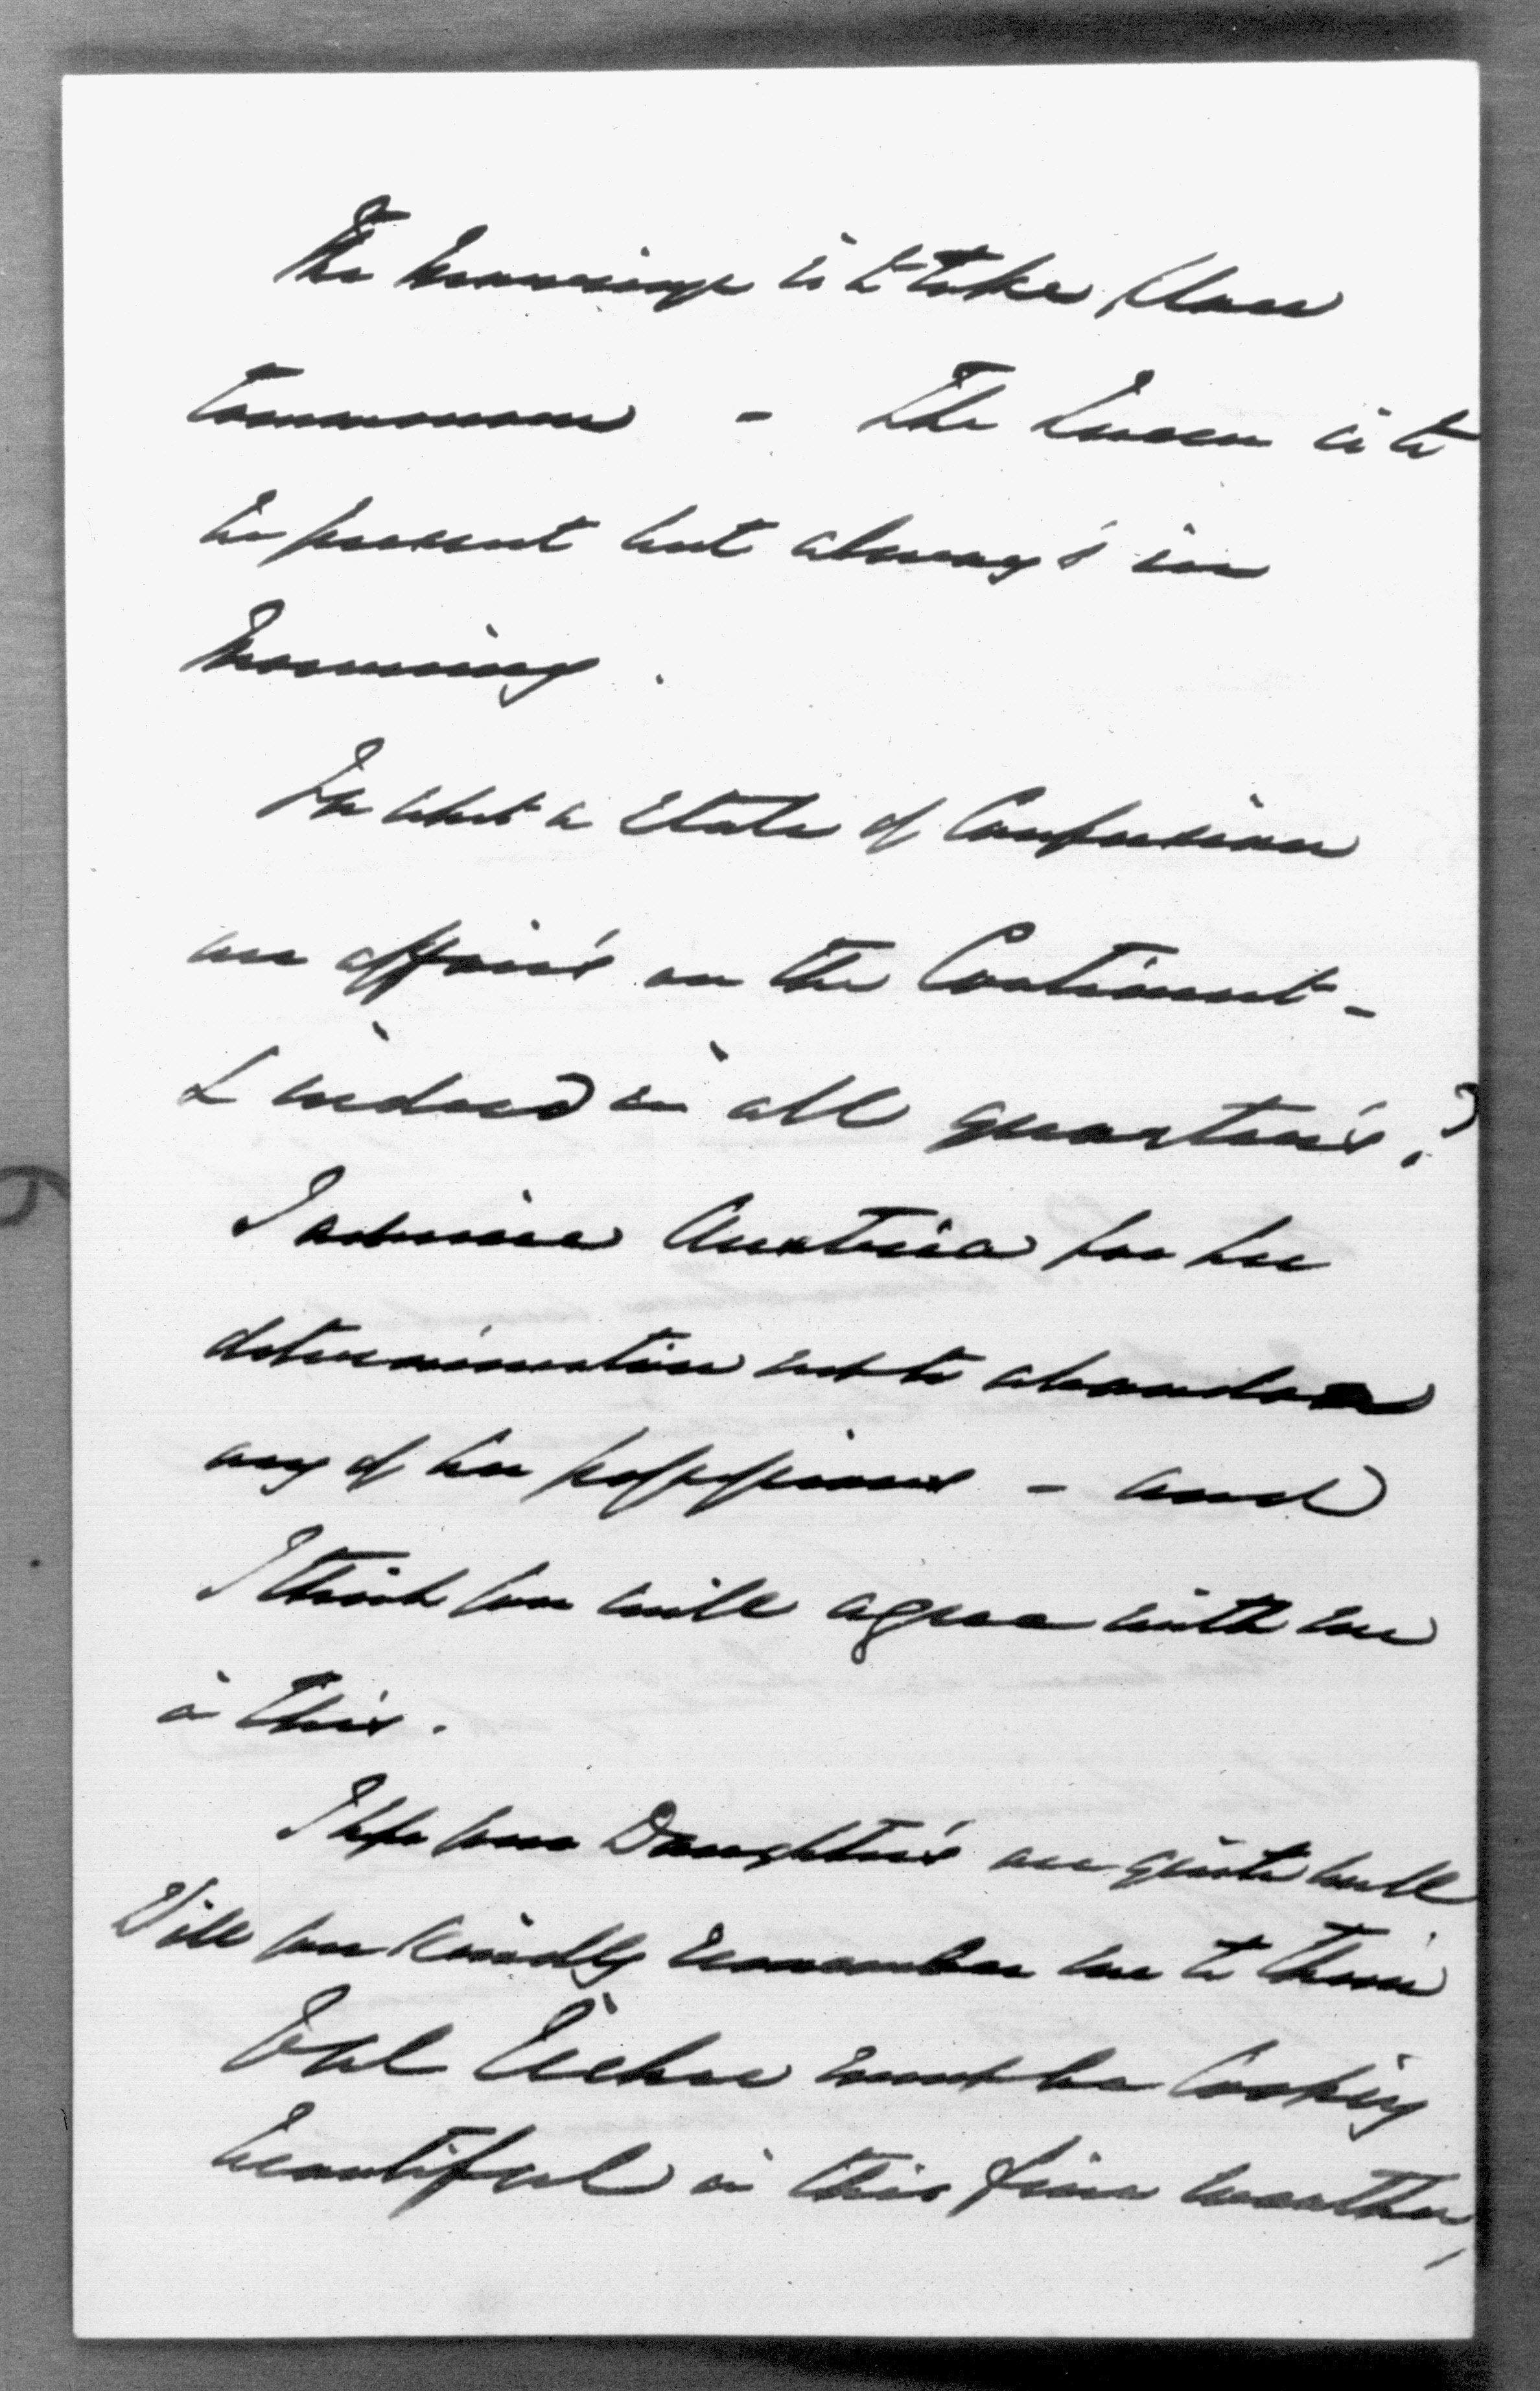 The marriage is to take place
tomorrow - The Queen is to
be present but always in
mourning.
In what a State of Confusion
are affairs on the Continent -
& indeed in all quarters?
I admire Austria for her
determination not to abandon
any of her possessions - and
I think you will agree with me
in this.
I hope your Daughters are quite well
Will you kindly remember me to them
Oak must be looking
beautiful in this fine weather,